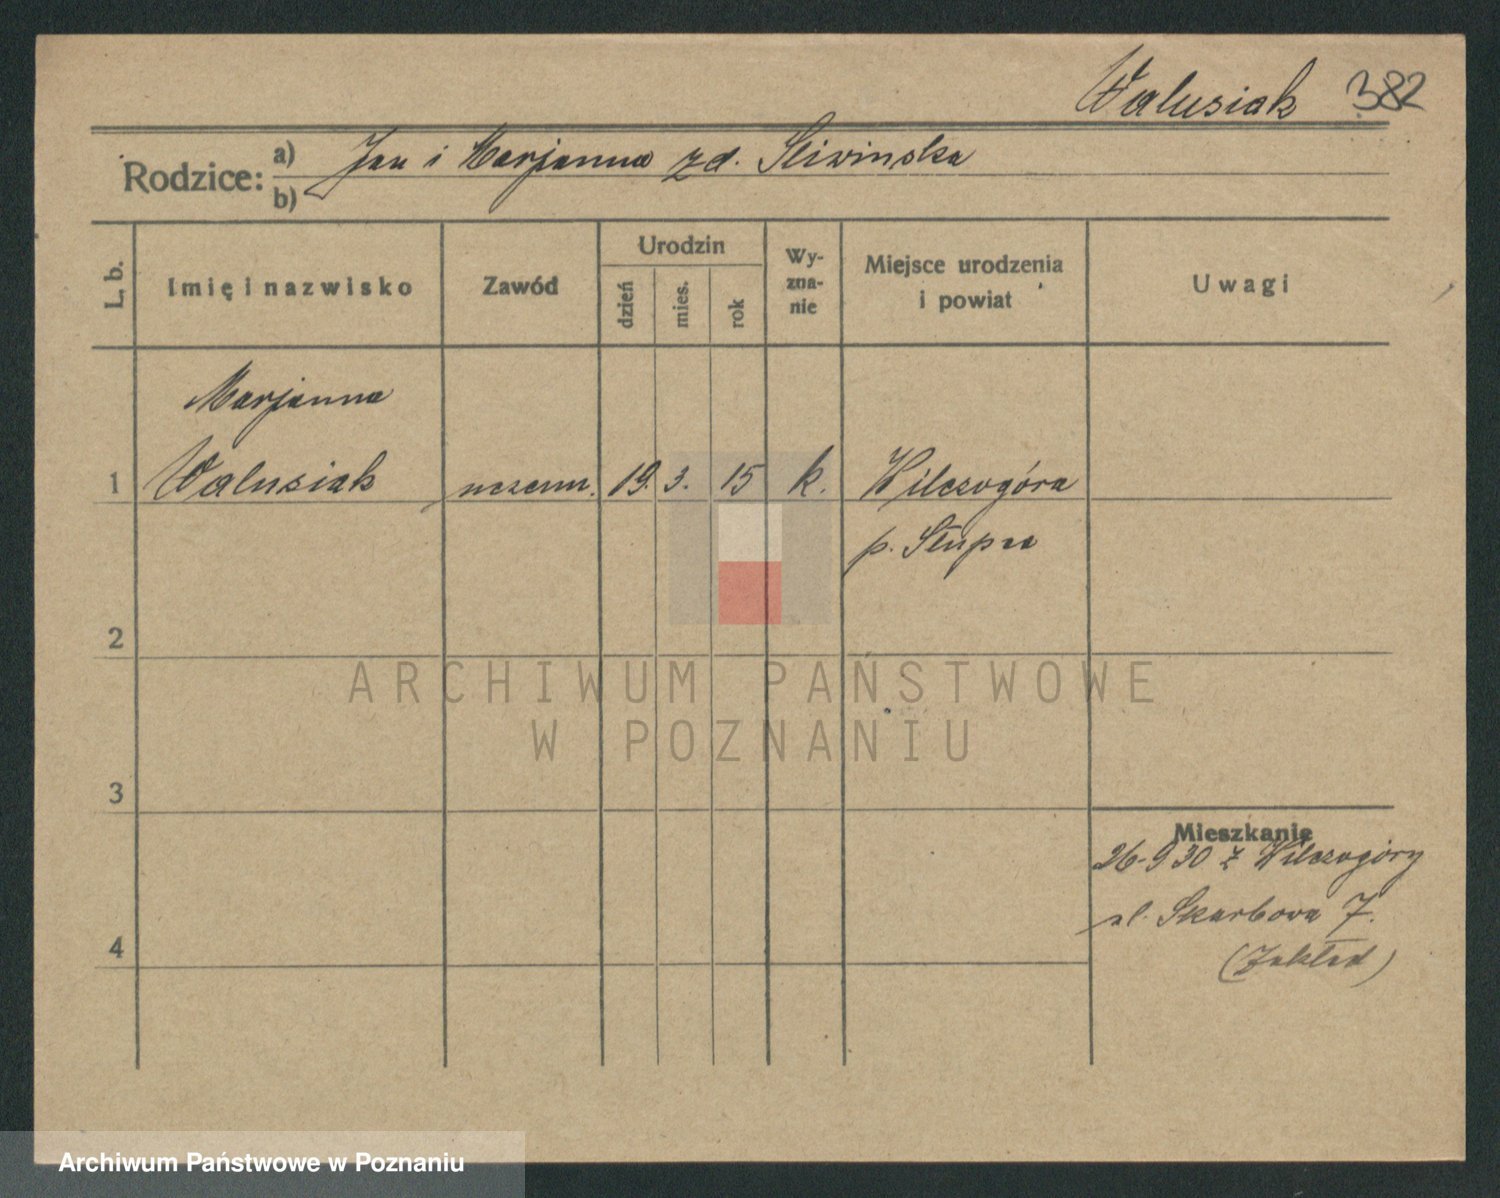 Walusiak 382
Rodzice: a) Jan i Marjanna zd. Śliwinska
b)
L. b.
Imię i nazwisko
Zawód
Urodzin
dzień
mies.
rok
Wy-
zna-
nie
Miejsce urodzenia
i powiat
Uwagi
Marjanna
1 Walusiak uczenn. 19. 3. 15 k. Wilczogóra
p. Słupca
2
ARCHIWUM PAŃSTWOWE
W POZNANIU
3
Mieszkanie
26-9 30 z Wilczogóry
ul. Skarbowa 7.
4
(Zakład)
Archiwum Państwowe w Poznaniu